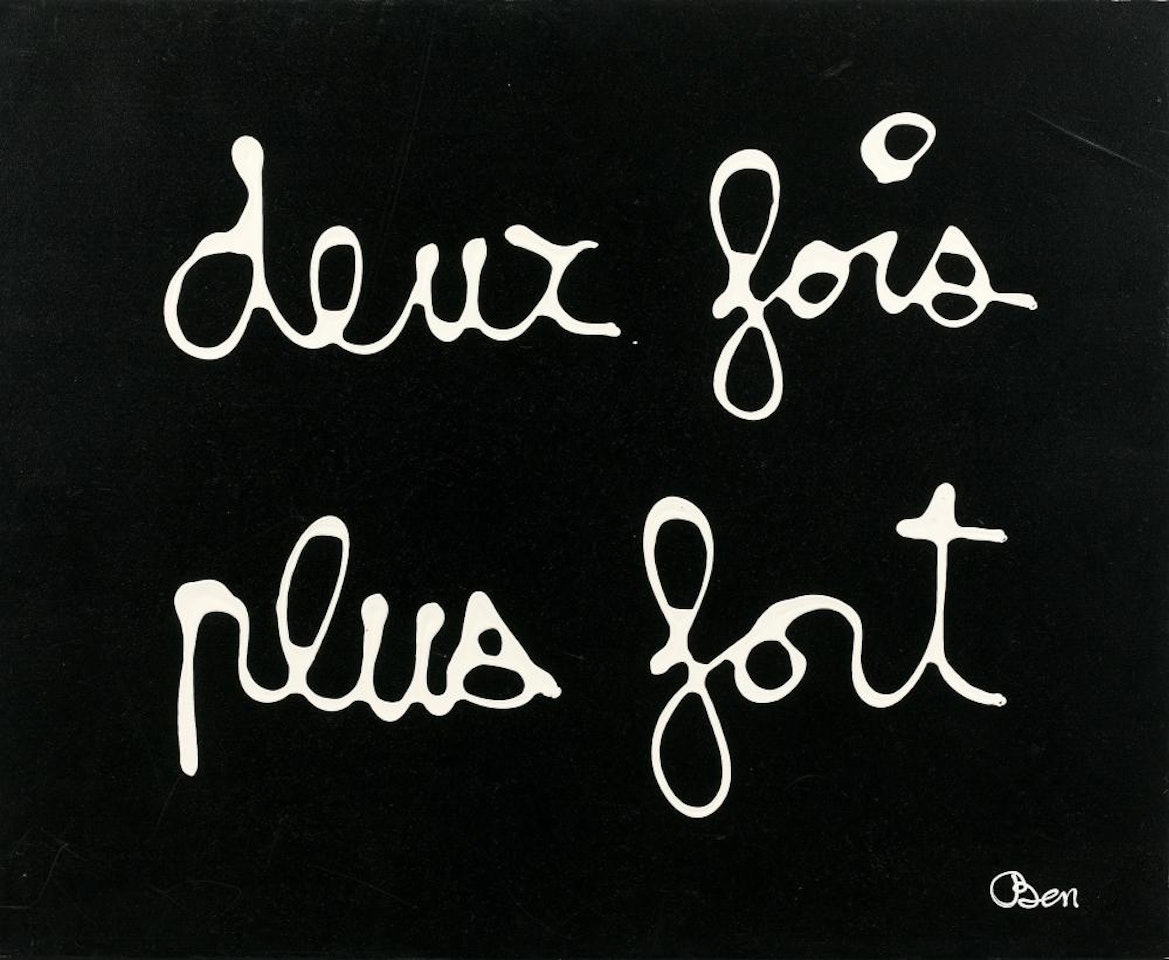 deux fois
plus fort
Ben